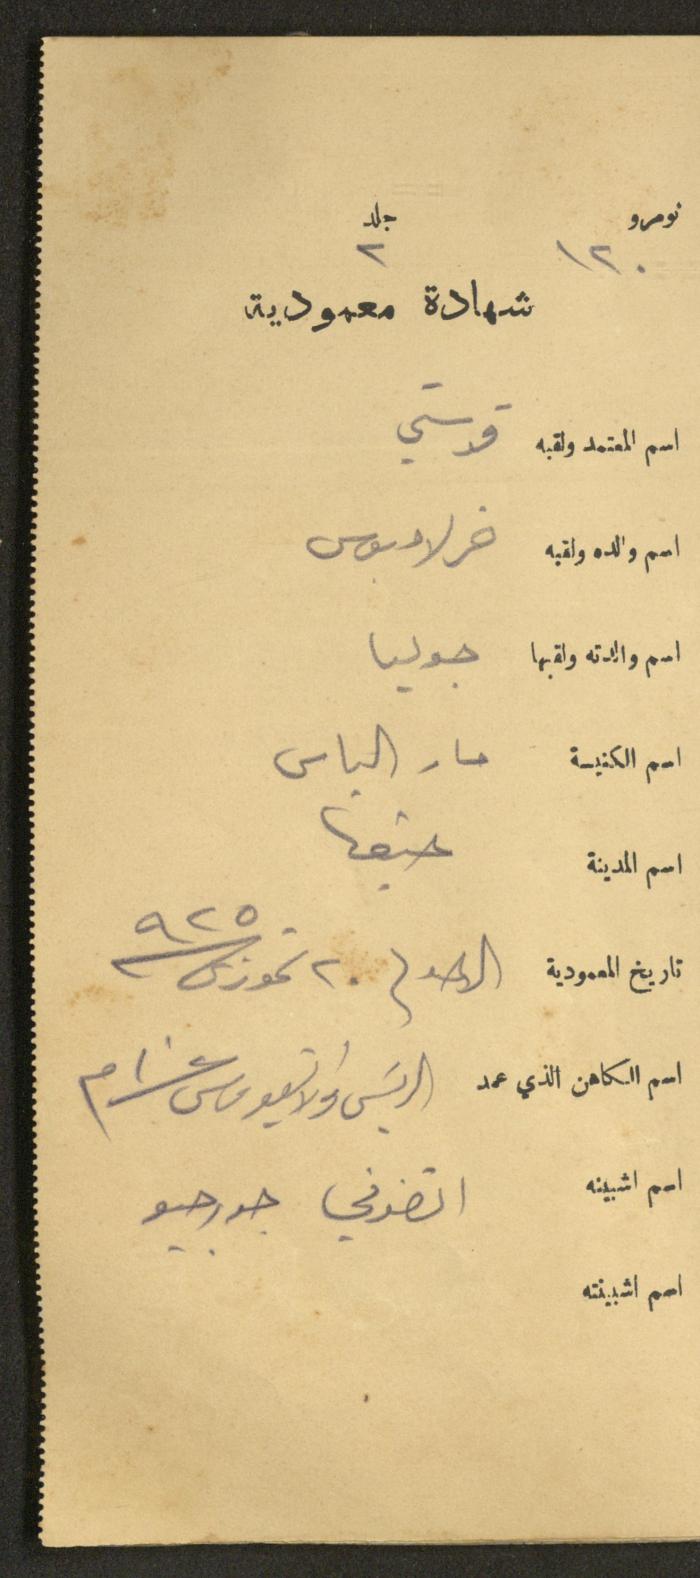 نومرو جلد
١٢٠ ٢
شهادة معمودية
اسم المعتمد ولقبه قدستي
اسم والده ولقبه خرلامبوس
اسم والدته ولقبها جوليا
اسم الكنيسة مار الياس
اسم المدينة حيفا
تاريخ المعمودية الاحد ٢٠ تموز سنة ٩٢٥
اسم الكاهن الذي عمد
اسم اشبينه انضوني جورجيو
اسم اشبينته